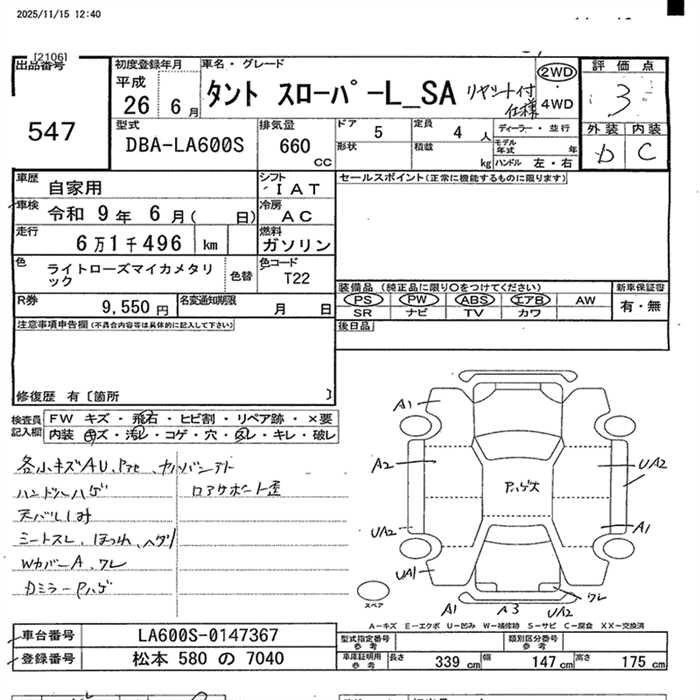 2025/11/15 12:40
[2106]
出品番号
547
初度登録年月
平成
26 6月
車名・グレード
タント スローパーL_SA
リヤシート付
仕様
2WD
4WD
評価点
3
外装 内装
D C
型式
DBA-LA600S
排気量
660
cc
ドア 5
定員 4 人
形状
積載 kg
ディーラー・並行
モデル年式 年
ハンドル 左・右
車歴
自家用
シフト
IAT
車検
令和 9年 6月( 日)
冷房
AC
走行
6万1千496 km
燃料
ガソリン
色
ライトローズマイカメタリック
色替
色コード
T22
R券
9,550円
名変通知期限
月 日
セールスポイント(正常に機能するものに限ります)
装備品 (純正品に限り○をつけてください)
PS PW ABS エアB AW
SR ナビ TV カワ
新車保証書
有・無
後日品
注意事項申告欄(不具合内容等は具体的に記入して下さい)
修復歴 有〔箇所 〕
検査員
記入欄
FW キズ・飛石・ヒビ割・リペア跡・×要
内装 キズ・汚レ・コゲ・穴・スレ・キレ・破レ
各小キズAU,
ハンドルハゲ
ロアサポート歪
天バリしみ
シートスレ、ほつれ、ヘタリ
WカバーA、ワレ
Dミラー Pハゲ
A1
A2
UA2
UA1
Pハゲス
UA2
A1
ワレ
A1 A3 UA2
スペア
A-キズ E-エクボ U-凹み W-補修跡 S-サビ C-腐食 XX-交換済
車台番号
LA600S-0147367
登録番号
松本 580 の 7040
型式指定番号
参考
類別区分番号
参考
車庫証明用
参考
長さ 339 cm
幅 147 cm
高さ 175 cm